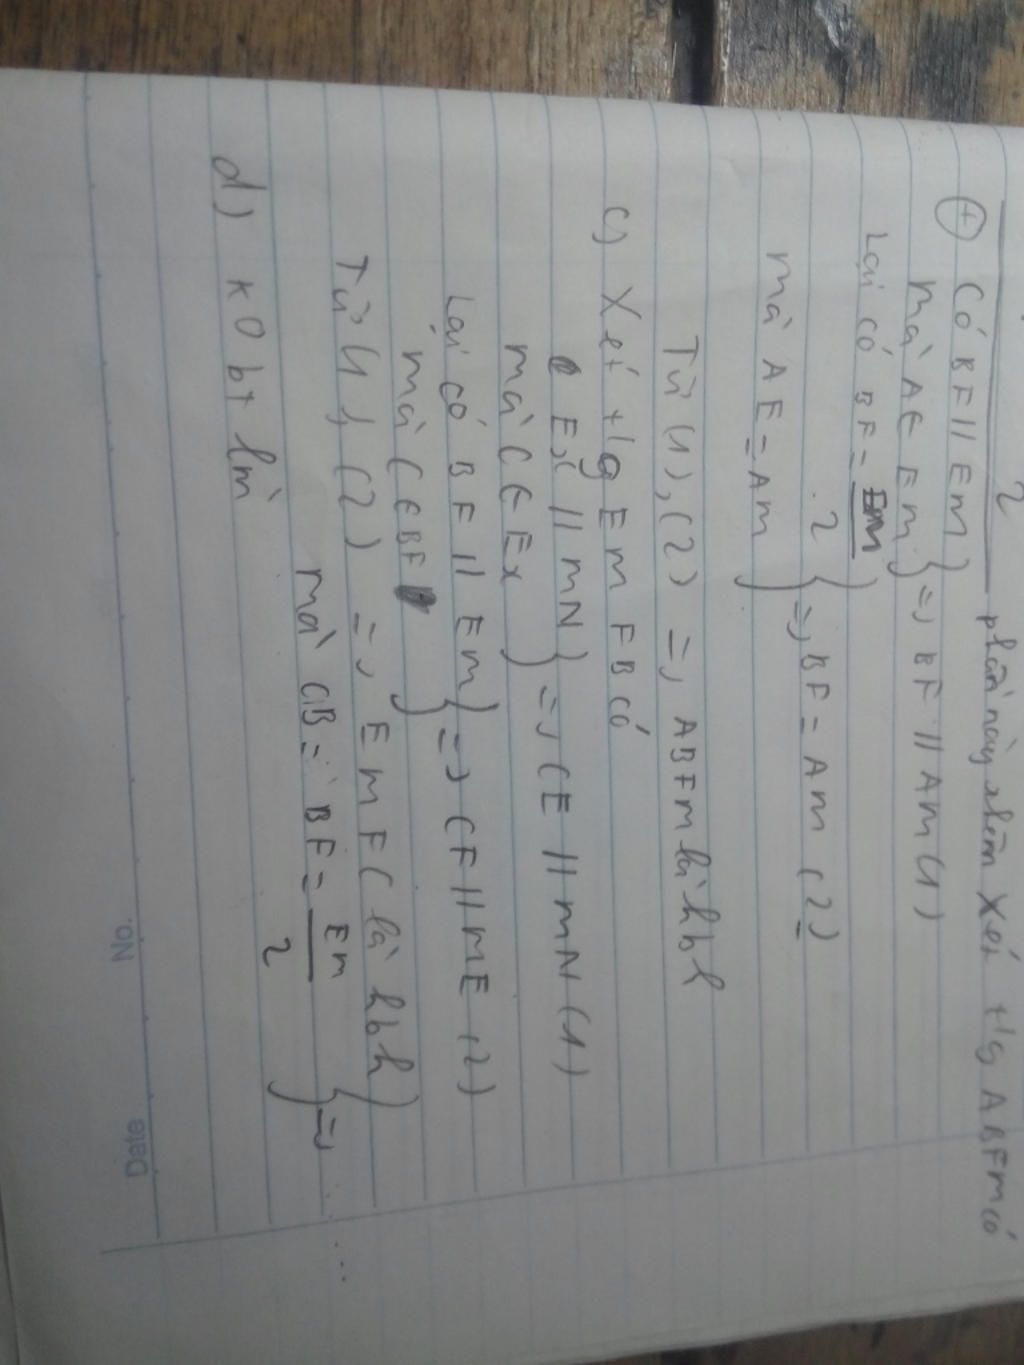 2
phần này thêm Xét t/g ABFM có
+ Có BF // EM } => BF // AM (1)
mà A ∈ EM
Lại có BF = EM
2 } => BF = AM (2)
mà AE = AM
Từ (1), (2) => ABFM là hbh
c) Xét t/g EMFB có
Ex // MN } => CE // MN (1)
mà C ∈ Ex
Lại có BF // EM } => CF // ME (2)
mà C ∈ BF
Từ (1), (2) => EMFC là hbh } => ...
mà CB = BF = EM
2
d) k0 bt lm
No.
Date